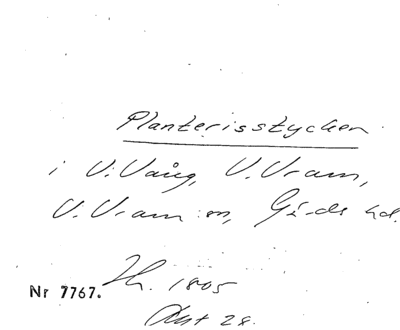 Planterisstycken
i V. Vång, V. Vram,
V. Vram sn, Gärds hd.
Nr 7767. 1805
Akt 28.